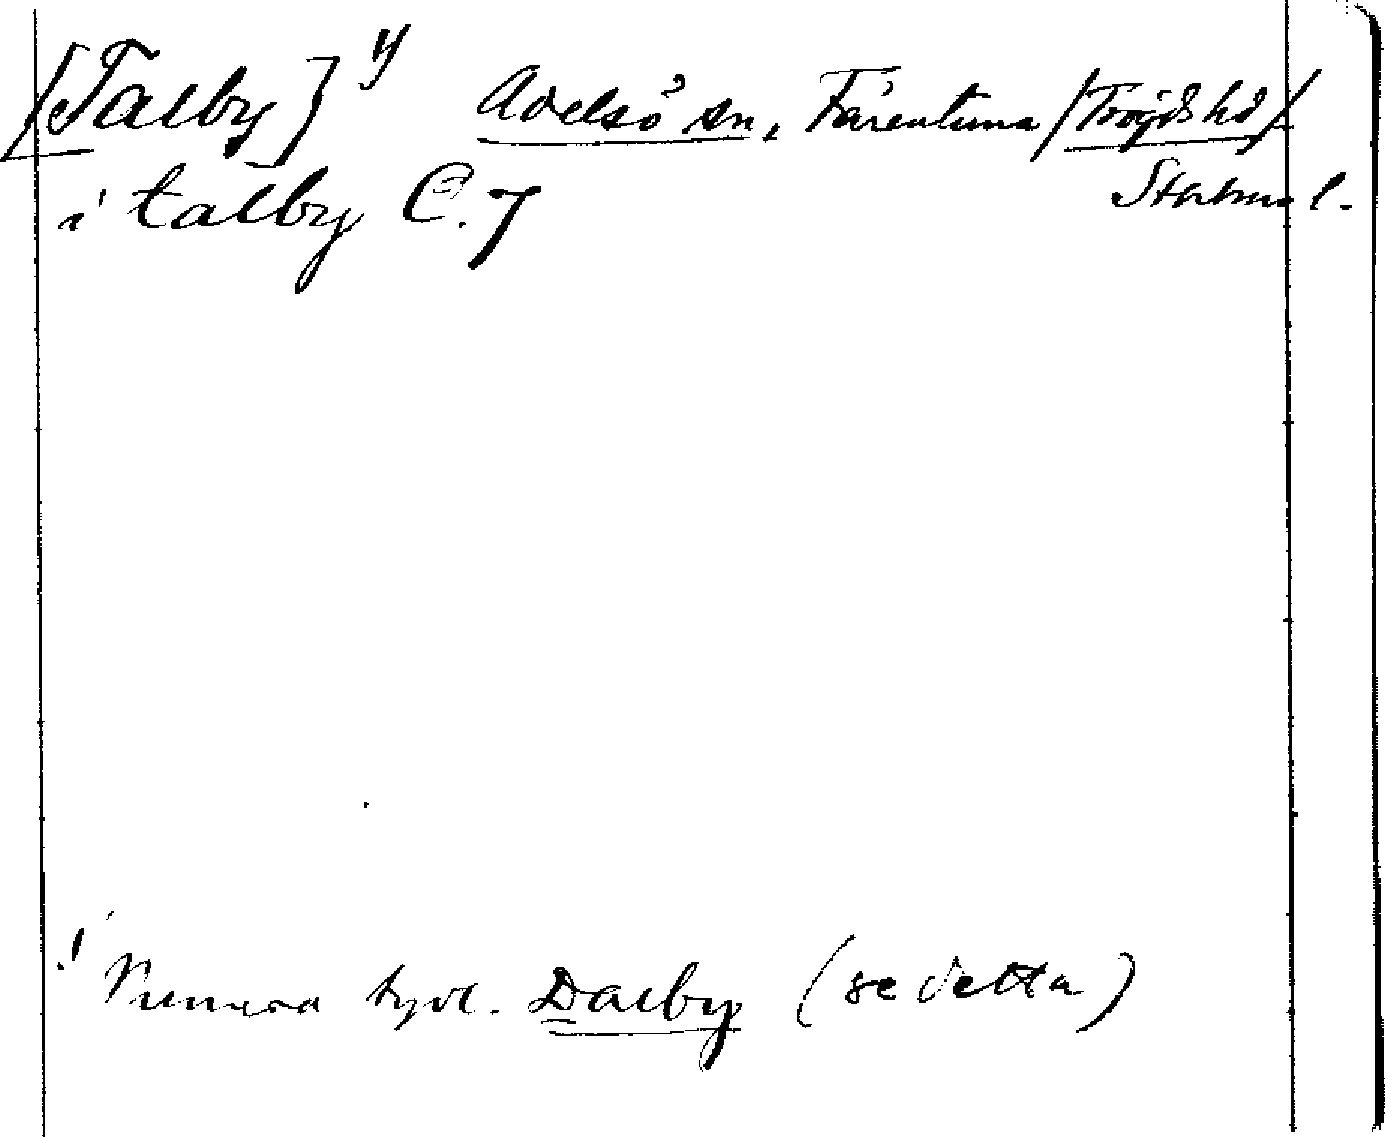 [Talby] 1) Adelsö sn, Färentuna /Tröjds hd/
Sthlms l.
i talby C. 7
1 Numera tydl. Dalby (se detta)